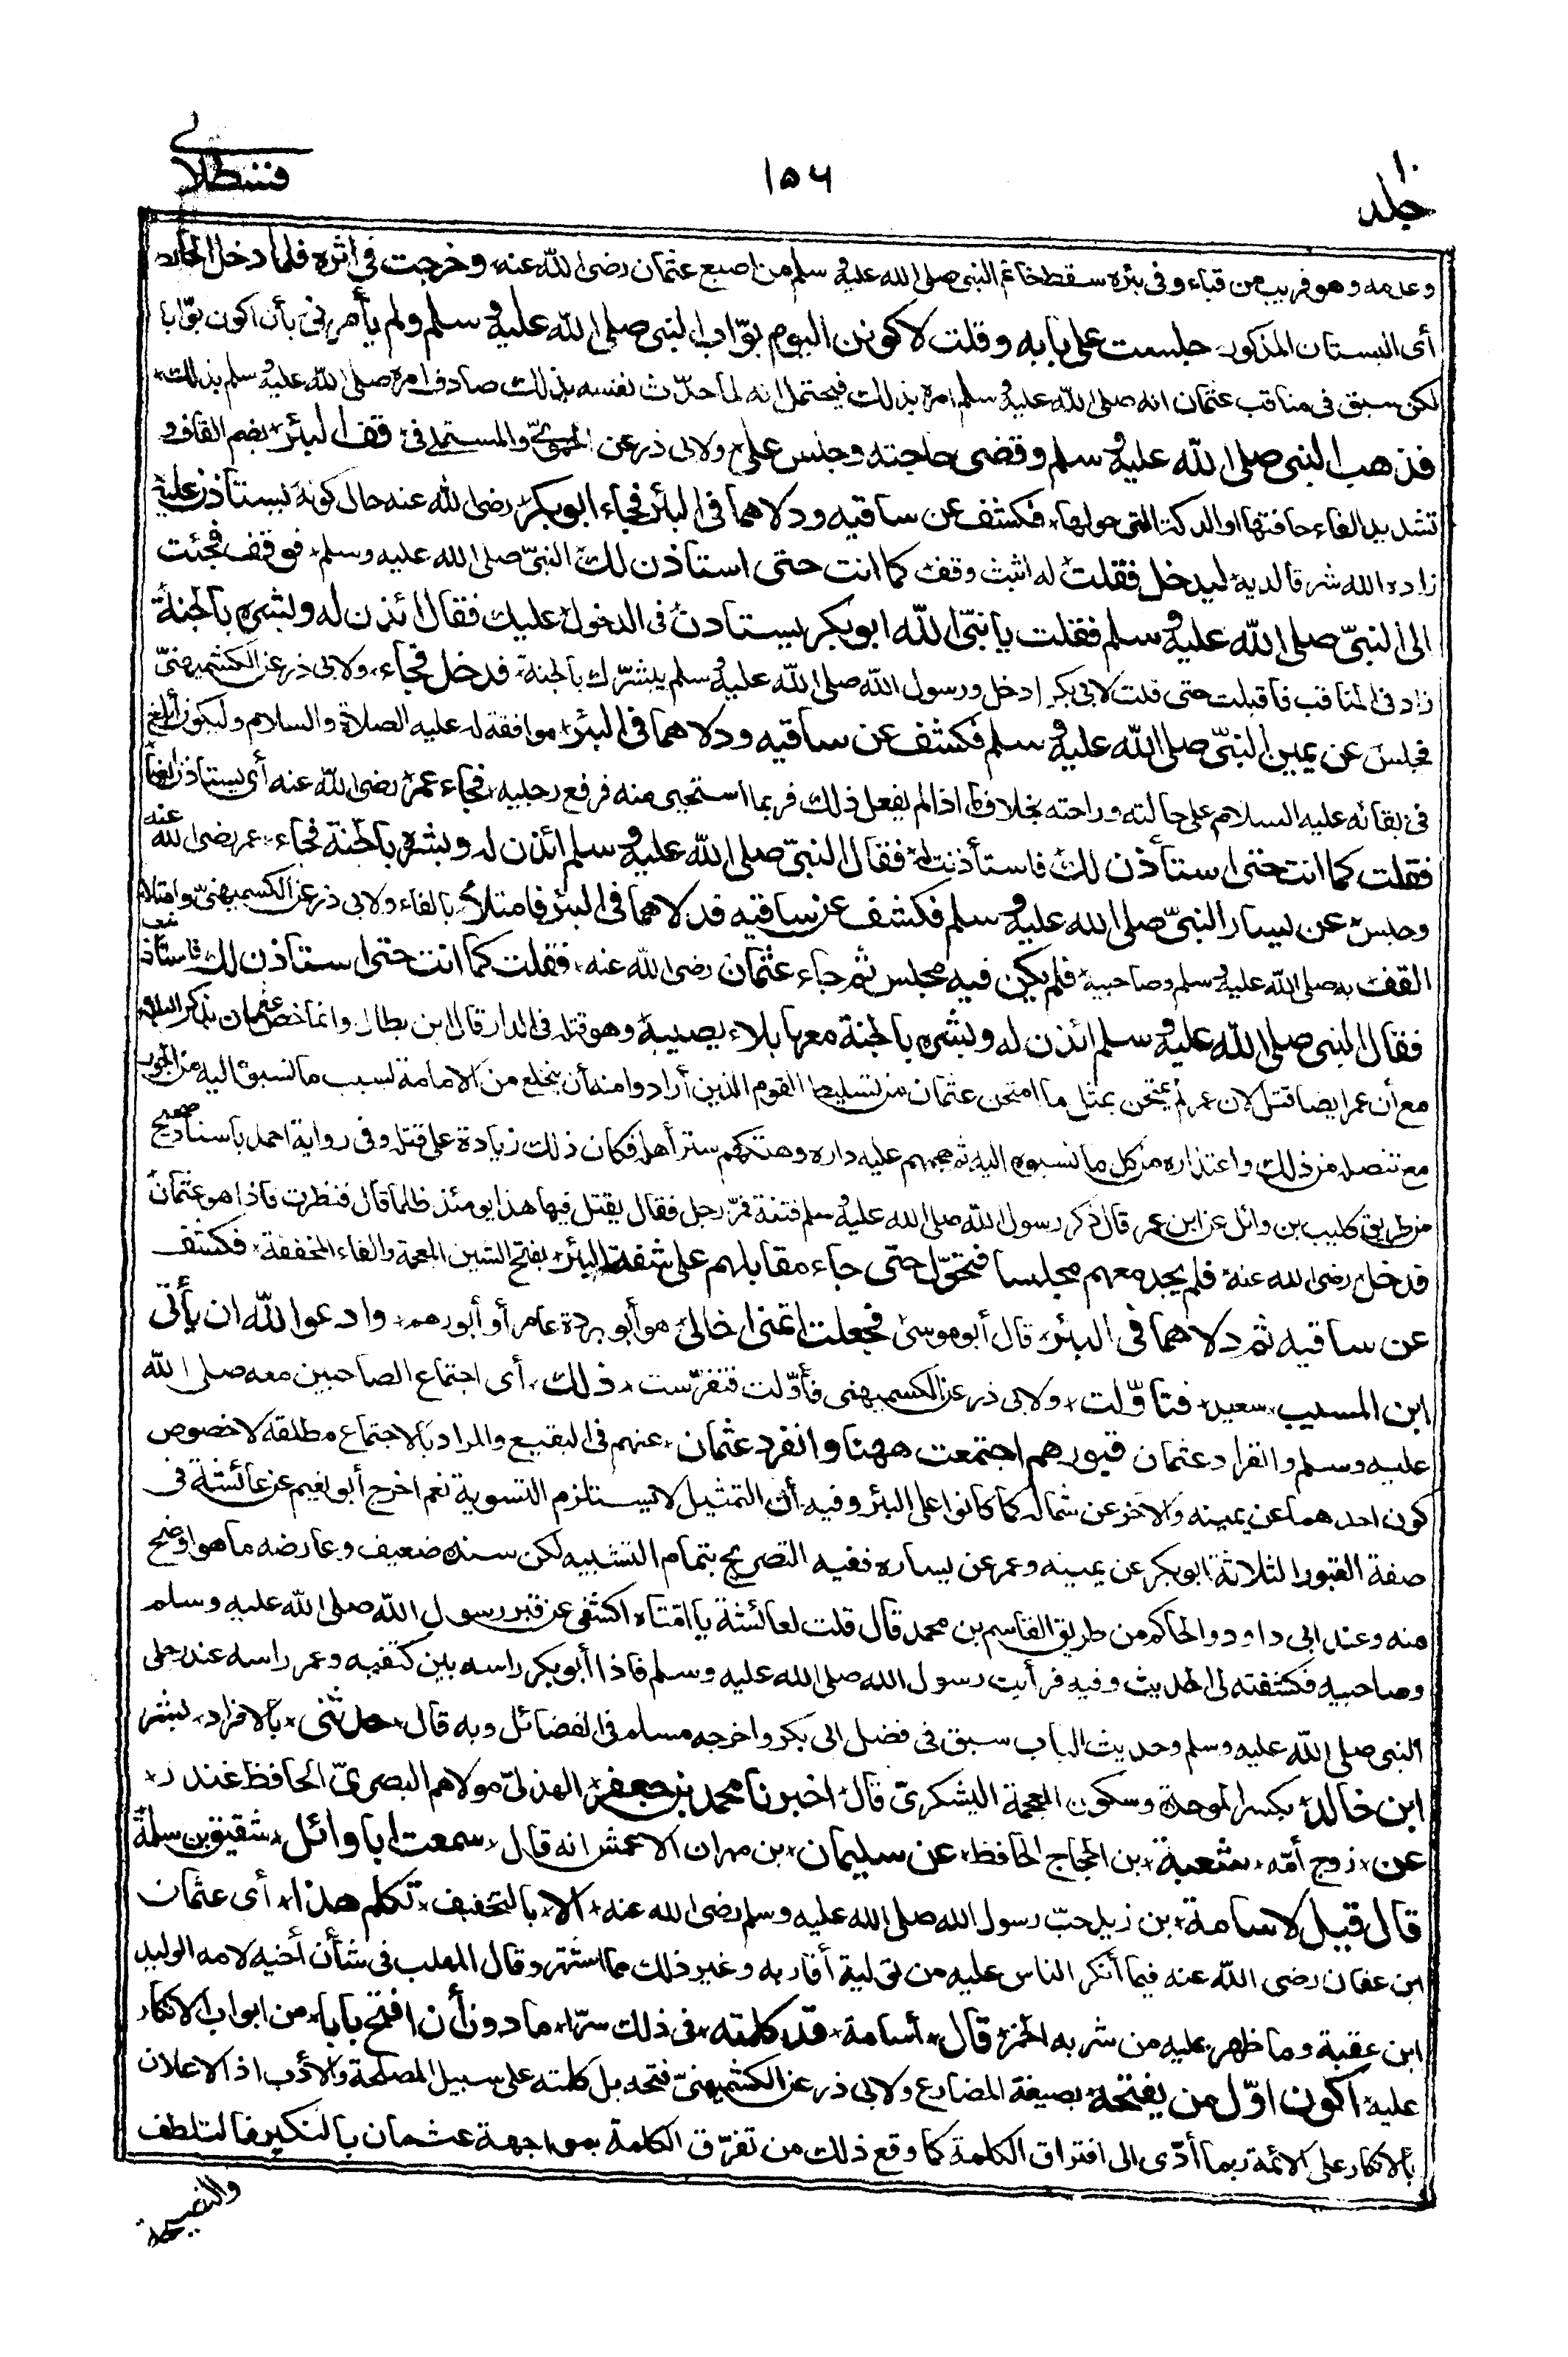 جلد ١٠
١٥٦
قسطلانی
وعدمه وهو قريب من قباء وفى بئره سقط خاتم النبى صلى الله عليه وسلم من اصبع عثمان رضى الله عنه وخرجت فى اثره فلما دخل الحائط
أى البستان المذكور جلست على بابه وقلت لاكونن اليوم بوّاب النبى صلى الله عليه وسلم ولم يأمرنى بأن اكون بوّابا
لكن سبق فى مناقب عثمان انه صلى الله عليه وسلم امره بذلك فيحتمل انه لما حدّث نفسه بذلك صادف امره صلى الله عليه وسلم بذلك
فذهب النبى صلى الله عليه وسلم وقضى حاجته وجلس على ولابى ذر عن الحموىّ والمستملى فى قف البئر بضم القاف و
تشديد الفاء حافتها او الدكة التى حولها فكشف عن ساقيه ودلاهما فى البئر فجاء ابو بكر رضى الله عنه حال كونه يستأذن عليه
زاده الله شرفا لديه ليدخل فقلت له اثبت وقف كما انت حتى استاذن لك النبىّ صلى الله عليه وسلم فوقف فجئت
الى النبىّ صلى الله عليه وسلم فقلت يا نبىّ الله ابو بكر يستاذن فى الدخول عليك فقال ائذن له وبشره بالجنة
زاد فى المناقب فاقبلت حتى قلت لابى بكر ادخل ورسول الله صلى الله عليه وسلم يبشّرك بالجنة فدخل فجاء ولابى ذر عن الكشميهنىّ
فجلس عن يمين النبىّ صلى الله عليه وسلم فكشف عن ساقيه ودلاهما فى البئر موافقة له عليه الصلاة والسلام وليكون أبلغ
فى بقائه عليه السلام على حالته وراحته بخلاف ما اذا لم يفعل ذلك فربما استحيى منه فرفع رجليه فجاء عمر رضى الله عنه أى يستاذن ايضا
فقلت كما انت حتى استأذن لك فاستأذنت له فقال النبىّ صلى الله عليه وسلم ائذن له وبشره بالجنة فجاء عمر رضى الله عنه
وجلس عن يسار النبىّ صلى الله عليه وسلم فكشف عن ساقيه فدلاهما فى البئر فامتلأ بالفاء ولابى ذر عن الكشميهنىّ وامتلأ
القف به صلى الله عليه وسلم وصاحبيه فلم يكن فيه مجلس ثم جاء عثمان رضى الله عنه فقلت كما انت حتى استاذن لك فاستأذنت
فقال النبى صلى الله عليه وسلم ائذن له وبشره بالجنة معها بلاء يصيبه وهو قتله فى الدار قال ابن بطال وانما خص عثمان بذكر البلاء
مع أن عمر ايضا قتل لان عمر لم يمتحن بمثل ما امتحن عثمان من تسليط القوم الذين أرادوا منه أن ينخلع من الامامة بسبب ما نسبوه اليه من الجور
مع تنصله من ذلك واعتذاره من كل ما نسبوه اليه ثم هجمهم عليه داره وهتكهم ستر أهله فكان ذلك زيادة على قتله وفى رواية احمد باسناد صحيح
من طريق كليب بن وائل عن ابن عمر قال ذكر رسول الله صلى الله عليه وسلم فتنة فمرّ رجل فقال يقتل فيها هذا يومئذ ظلما قال فنظرت فاذا هو عثمان
فدخل رضى الله عنه فلم يجد معهم مجلسا فتحوّل حتى جاء مقابلهم على شفة البئر بفتح الشين المعجمة والفاء المخففة فكشف
عن ساقيه ثم دلاهما فى البئر قال أبو موسى فجعلت اتمنى اخا لى هو أبو بردة عامر أو أبو رهم وادعوا الله ان يأتى
ابن المسيب سعيد فتاوّلت ولابى ذر عن الكشميهنى فأوّلت فتفرّست ذلك أى اجتماع الصاحبين معه صلى الله
عليه وسلم وانفراد عثمان قبورهم اجتمعت ههنا وانفرد عثمان عنهم فى البقيع والمراد بالاجتماع مطلقه لا خصوص
كون احدهما عن يمينه والآخر عن شماله كما كانوا على البئر وفيه أن التمثيل لا يستلزم التسوية نعم اخرج أبو نعيم عن عائشة فى
صفة القبور الثلاثة ابو بكر عن يمينه وعمر عن يساره ففيه التصريح بتمام التشبيه لكن سنده ضعيف وعارضه ما هو اوضح
منه وعند ابى داود والحاكم من طريق القاسم بن محمد قال قلت لعائشة يا امّتاه اكشفى عن قبر رسول الله صلى الله عليه وسلم
وصاحبيه فكشفته لى الحديث وفيه فرأيت رسول الله صلى الله عليه وسلم فاذا أبو بكر راسه بين كتفيه وعمر راسه عند رجلى
النبى صلى الله عليه وسلم وحديث الباب سبق فى فضل ابى بكر واخرجه مسلم فى الفضائل وبه قال حدثنى بالافراد بشر
ابن خالد بكسر الموحدة وسكون المعجمة اليشكرىّ قال اخبرنا محمد بن جعفر الهذلىّ مولاهم البصرىّ الحافظ غندر
عن زوج أمّه شعبة بن الحجاج الحافظ عن سليمان بن مهران الاعمش انه قال سمعت ابا وائل شقيق بن سلمة
قال قيل لاسامة بن زيد حبّ رسول الله صلى الله عليه وسلم رضى الله عنه الا بالتخفيف تكلم هذا أى عثمان
ابن عفان رضى الله عنه فيما أنكر الناس عليه من تولية أقاربه وغير ذلك مما اشتهر وقال المهلب فى شأن أخيه لامه الوليد
ابن عقبة وما ظهر عليه من شربه الخمر قال أسامة قد كلمته فى ذلك سرّا ما دون أن افتح بابا من ابواب الانكار
عليه اكون اوّل من يفتحه بصيغة المضارع ولابى ذر عن الكشميهنىّ فتحه بل كلمته على سبيل المصلحة والأدب اذ الاعلان
بالانكار على الائمة ربما أدّى الى افتراق الكلمة كما وقع ذلك من تفرّق الكلمة بمواجهة عثمان بالنكير فالتلطف
والنصيحة